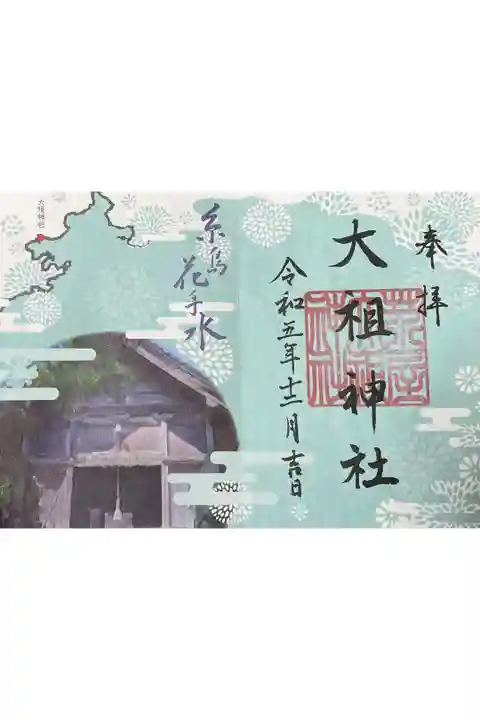 奉拝
大祖神社
令和五年十二月吉日
糸島
花手水
大祖神社